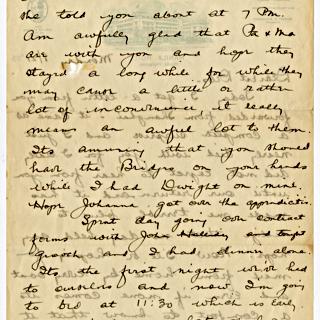 she told you about at 7 P.M.
Am awfully glad that Pa & Ma
are with you and hope they
stayed a long while for while they
may cause a little or rather
lot of inconvenience it really
means an awful lot to them.
Its amusing that you should
have the Bridges on your hands
while I had Dwight on mine.
Hope Johanna got over the appendicitis.
Spent day going over contract
forms with John Halliday and
and I had dinner alone.
Its the first night we've had
to ourselves and now I'm going
to bed at 11:30 which is early.